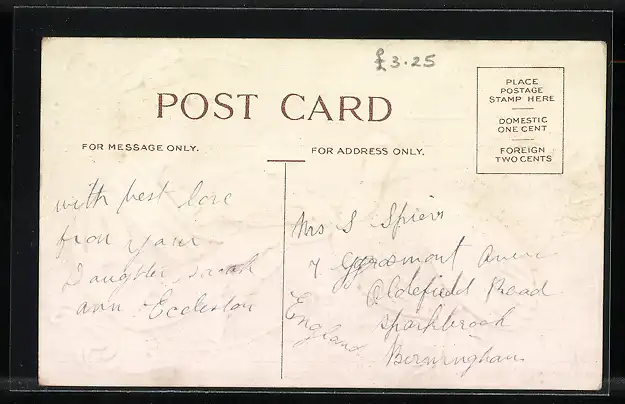 £3.25
POST CARD
PLACE
POSTAGE
STAMP HERE
DOMESTIC
ONE CENT
FOREIGN
TWO CENTS
FOR MESSAGE ONLY.
FOR ADDRESS ONLY.
with best love
from your
Daughter Sarah
ann Eccleston
Mrs S Spiers
7 Avenue
Road
Sparkbrook
Birmingham
England